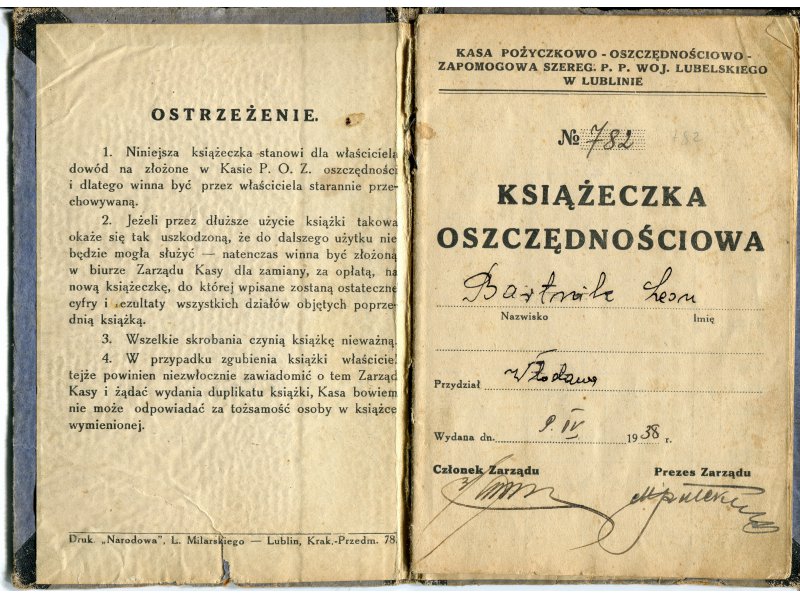 OSTRZEŻENIE.
1. Niniejsza książeczka stanowi dla właściciela
dowód na złożone w Kasie P. O. Z. oszczędności
i dlatego winna być przez właściciela starannie prze-
chowywaną.
2. Jeżeli przez dłuższe użycie książki takowa
okaże się tak uszkodzoną, że do dalszego użytku nie
będzie mogła służyć — natenczas winna być złożoną
w biurze Zarządu Kasy dla zamiany, za opłatą, na
nową książeczkę, do której wpisane zostaną ostateczne
cyfry i rezultaty wszystkich działów objętych poprze-
dnią książką.
3. Wszelkie skrobania czynią książkę nieważną.
4. W przypadku zgubienia książki właściciel
tejże powinien niezwłocznie zawiadomić o tem Zarząd
Kasy i żądać wydania duplikatu książki, Kasa bowiem
nie może odpowiadać za tożsamość osoby w książce
wymienionej.
Druk. „Narodowa”, L. Milarskiego — Lublin, Krak.-Przedm. 78.
KASA POŻYCZKOWO - OSZCZĘDNOŚCIOWO -
ZAPOMOGOWA SZEREG. P. P. WOJ. LUBELSKIEGO
W LUBLINIE
№ 782 782
KSIĄŻECZKA
OSZCZĘDNOŚCIOWA
Bartnik Leon
Nazwisko Imię
Przydział Włodawa
Wydana dn. 9. IV 1938 r.
Członek Zarządu Prezes Zarządu